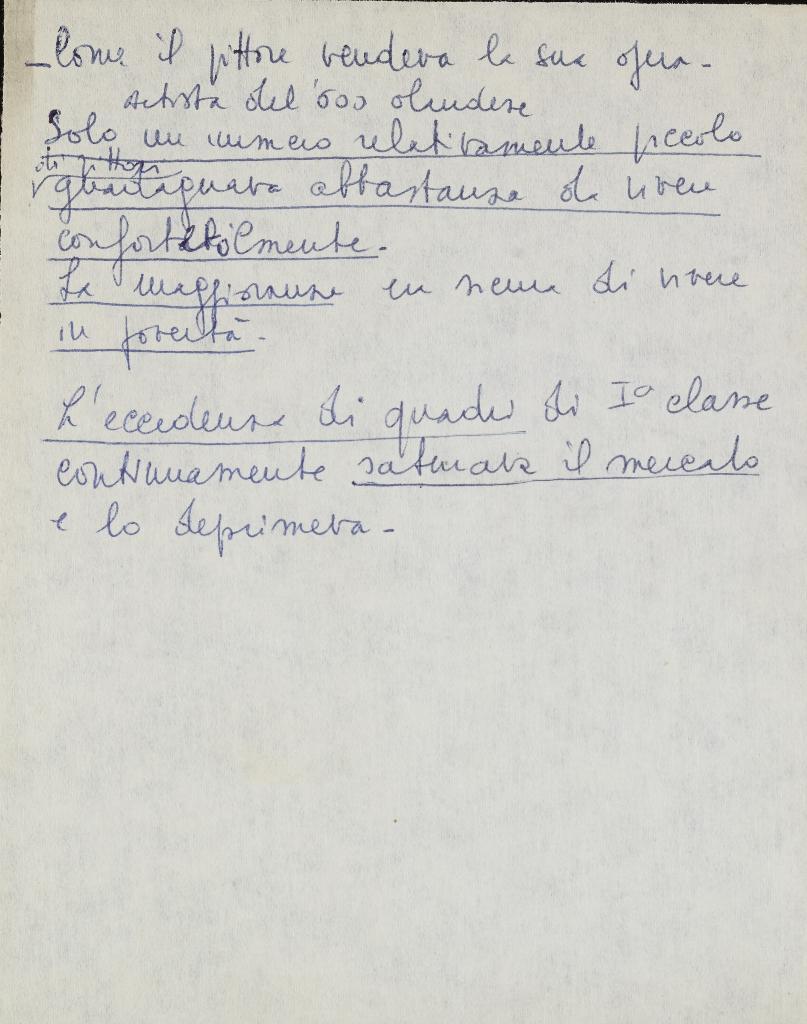 - Come il pittore vendeva la sua opera -
artista del '600 olandese
Solo un numero relativamente piccolo
di pittori
guadagnava abbastanza da vivere
confortabilmente.
La maggioranza era sicura di vivere
in povertà.
L'eccedenza di quadri di Iª classe
continuamente saturava il mercato
e lo deprimeva -